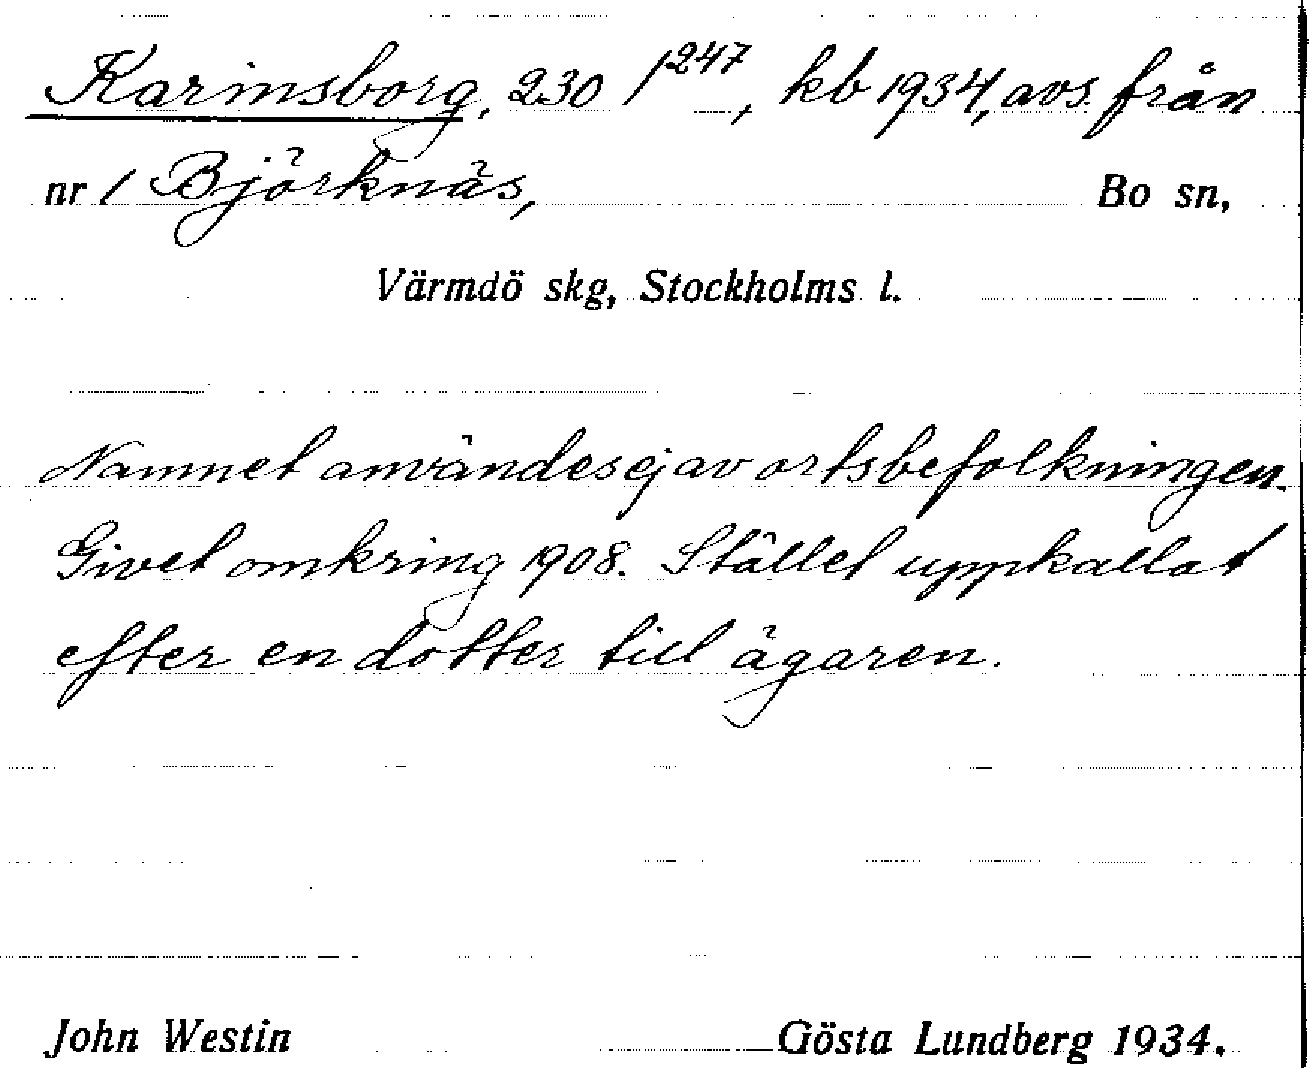 Karinsborg, 230 1²⁴⁷, kb 1934, avs. från
nr 1 Björknäs, Bo sn,
Värmdö skg, Stockholms l.
Namnet användes ej av ortsbefolkningen.
Givet omkring 1908. Stället uppkallat
efter en dotter till ägaren.
John Westin Gösta Lundberg 1934.